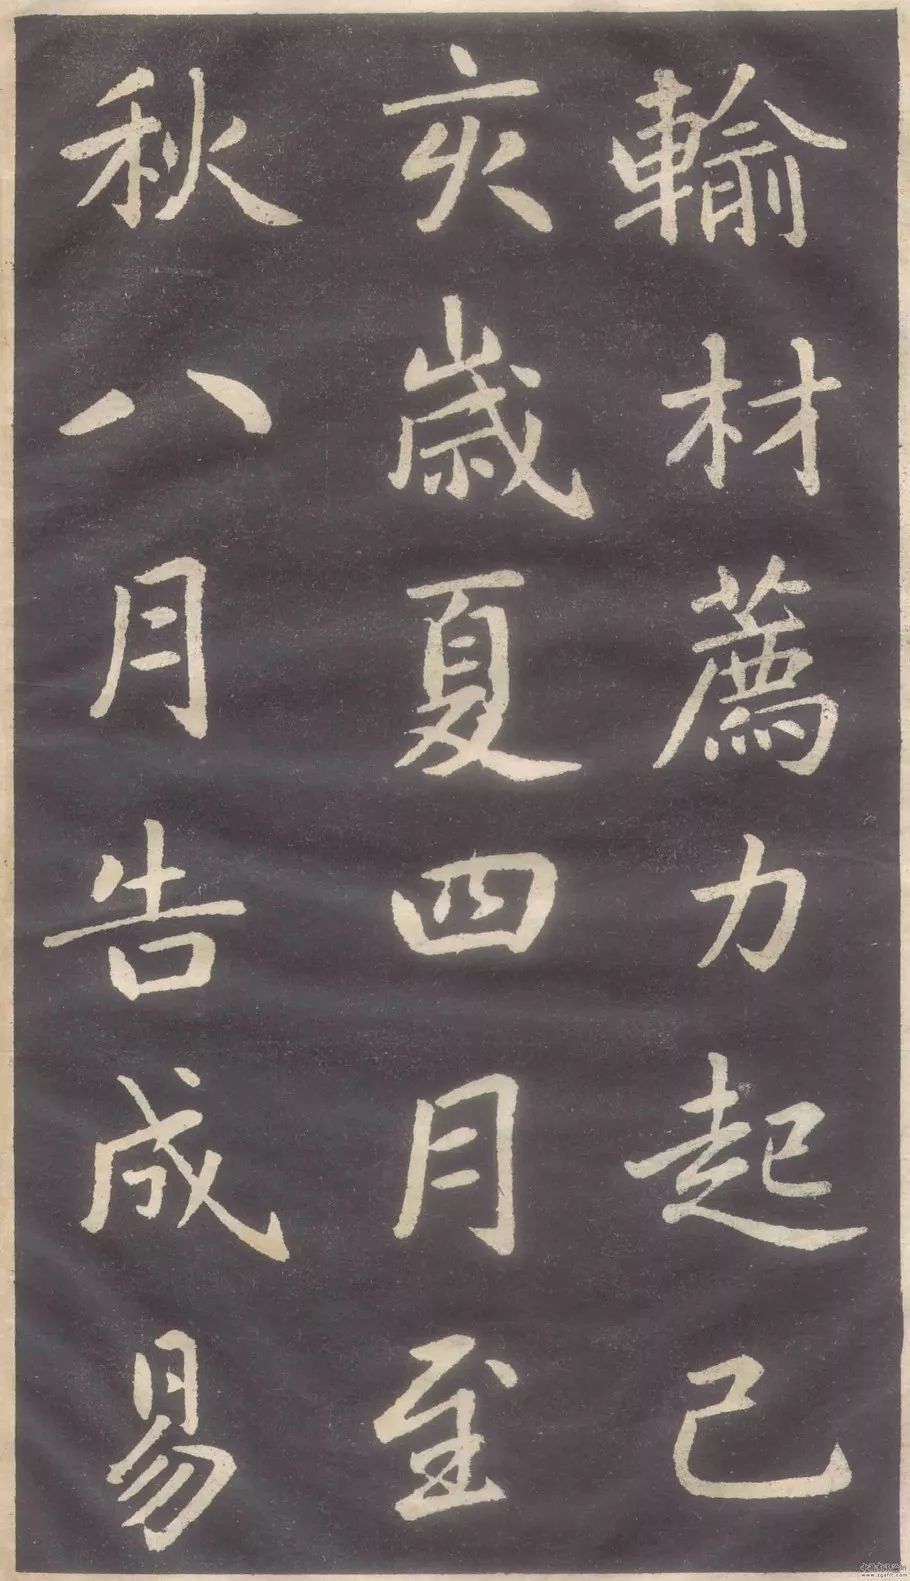 輸材薦力起己
亥歲夏四月至
秋八月告成易